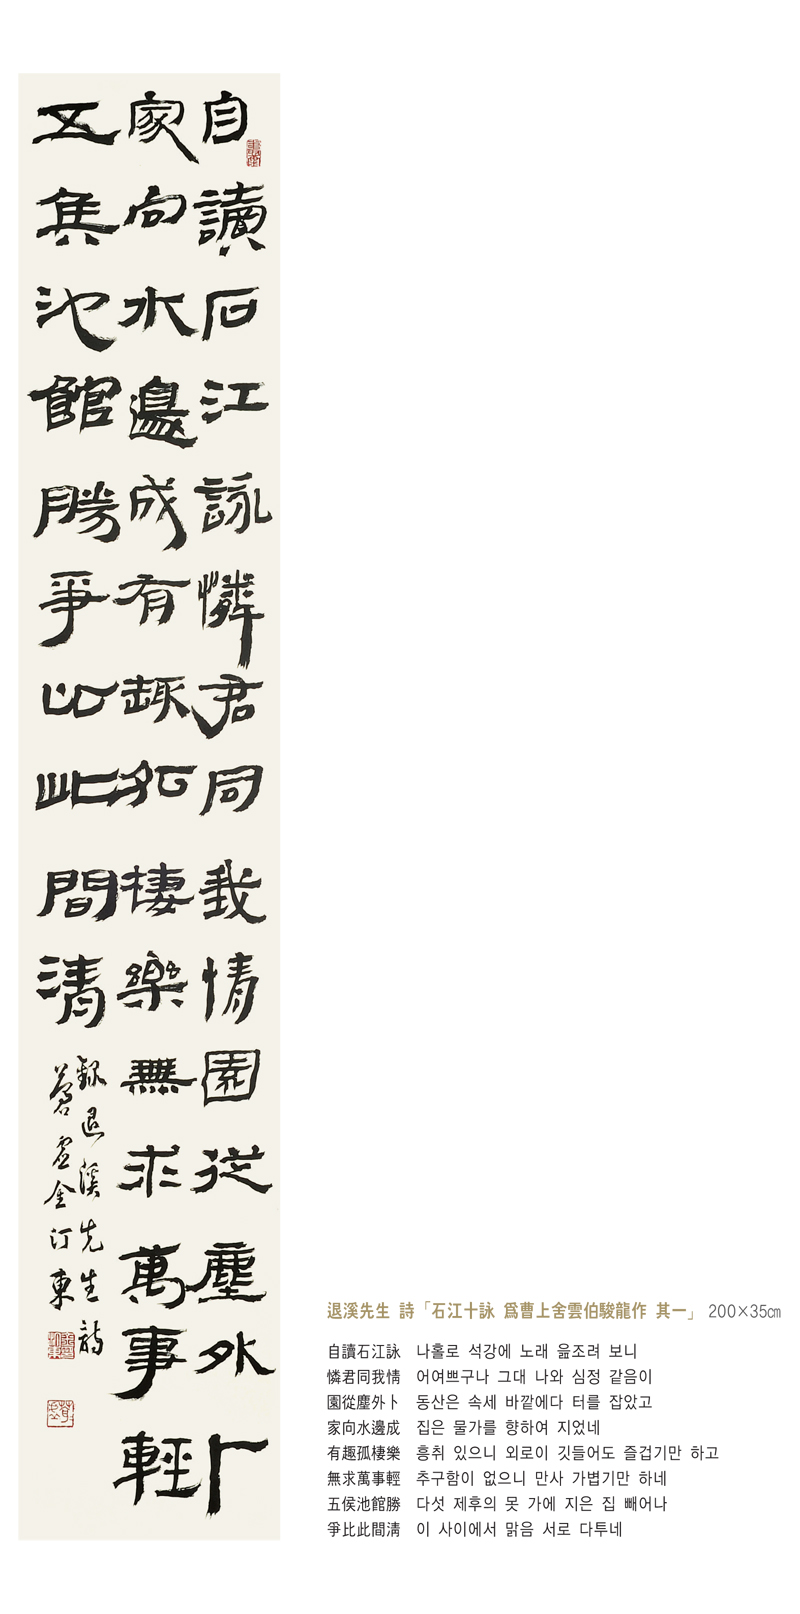 自讀石江詠憐君同我情園從塵外卜
家向水邊成有趣孤棲樂無求萬事輕
五侯池館勝爭比此間清
錄退溪先生詩
蒼虛金汀東
退溪先生 詩「石江十詠 爲曹上舍雲伯駿龍作 其一」 200×35㎝
自讀石江詠 나홀로 석강에 노래 읊조려 보니
憐君同我情 어여쁘구나 그대 나와 심정 같음이
園從塵外卜 동산은 속세 바깥에다 터를 잡았고
家向水邊成 집은 물가를 향하여 지었네
有趣孤棲樂 흥취 있으니 외로이 깃들어도 즐겁기만 하고
無求萬事輕 추구함이 없으니 만사 가볍기만 하네
五侯池館勝 다섯 제후의 못 가에 지은 집 빼어나
爭比此間淸 이 사이에서 맑음 서로 다투네